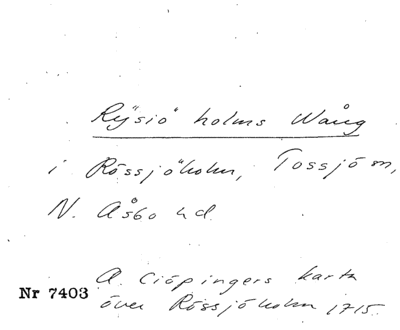 Rÿsiö holms Wång
i Rössjöholm, Tossjö sn,
N. Åsbo hd.
A. Ciöpingers karta
Nr 7403 över Rössjöholm 1715.